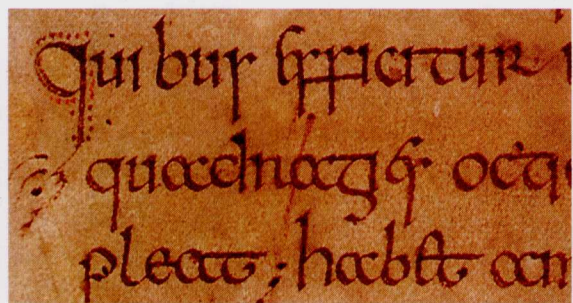 Quibus efficitur
quadragies octi
pleat; habet am